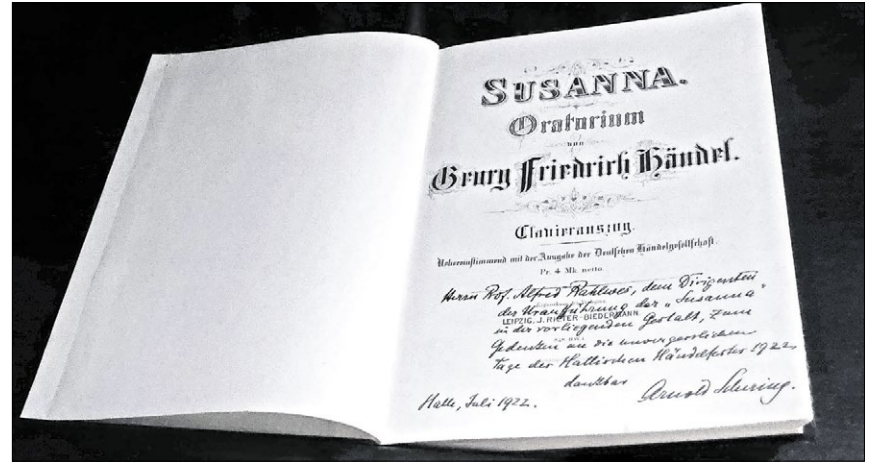 SUSANNA.
Oratorium
von
Georg Friedrich Händel.
Clavierauszug.
Uebereinstimmend mit der Ausgabe der Deutschen Händelgesellschaft.
Pr. 4 Mk. netto.
Herrn Prof. Alfred Rahlwes, dem Dirigenten
der Uraufführung der „Susanna“
LEIPZIG, J. RIETER-BIEDERMANN.
in der vorliegenden Gestalt, zum
Gedenken an die unvergesslichen
Tage des Hallischen Händelfestes 1922.
dankbar
Arnold Schering.
Halle, Juli 1922.